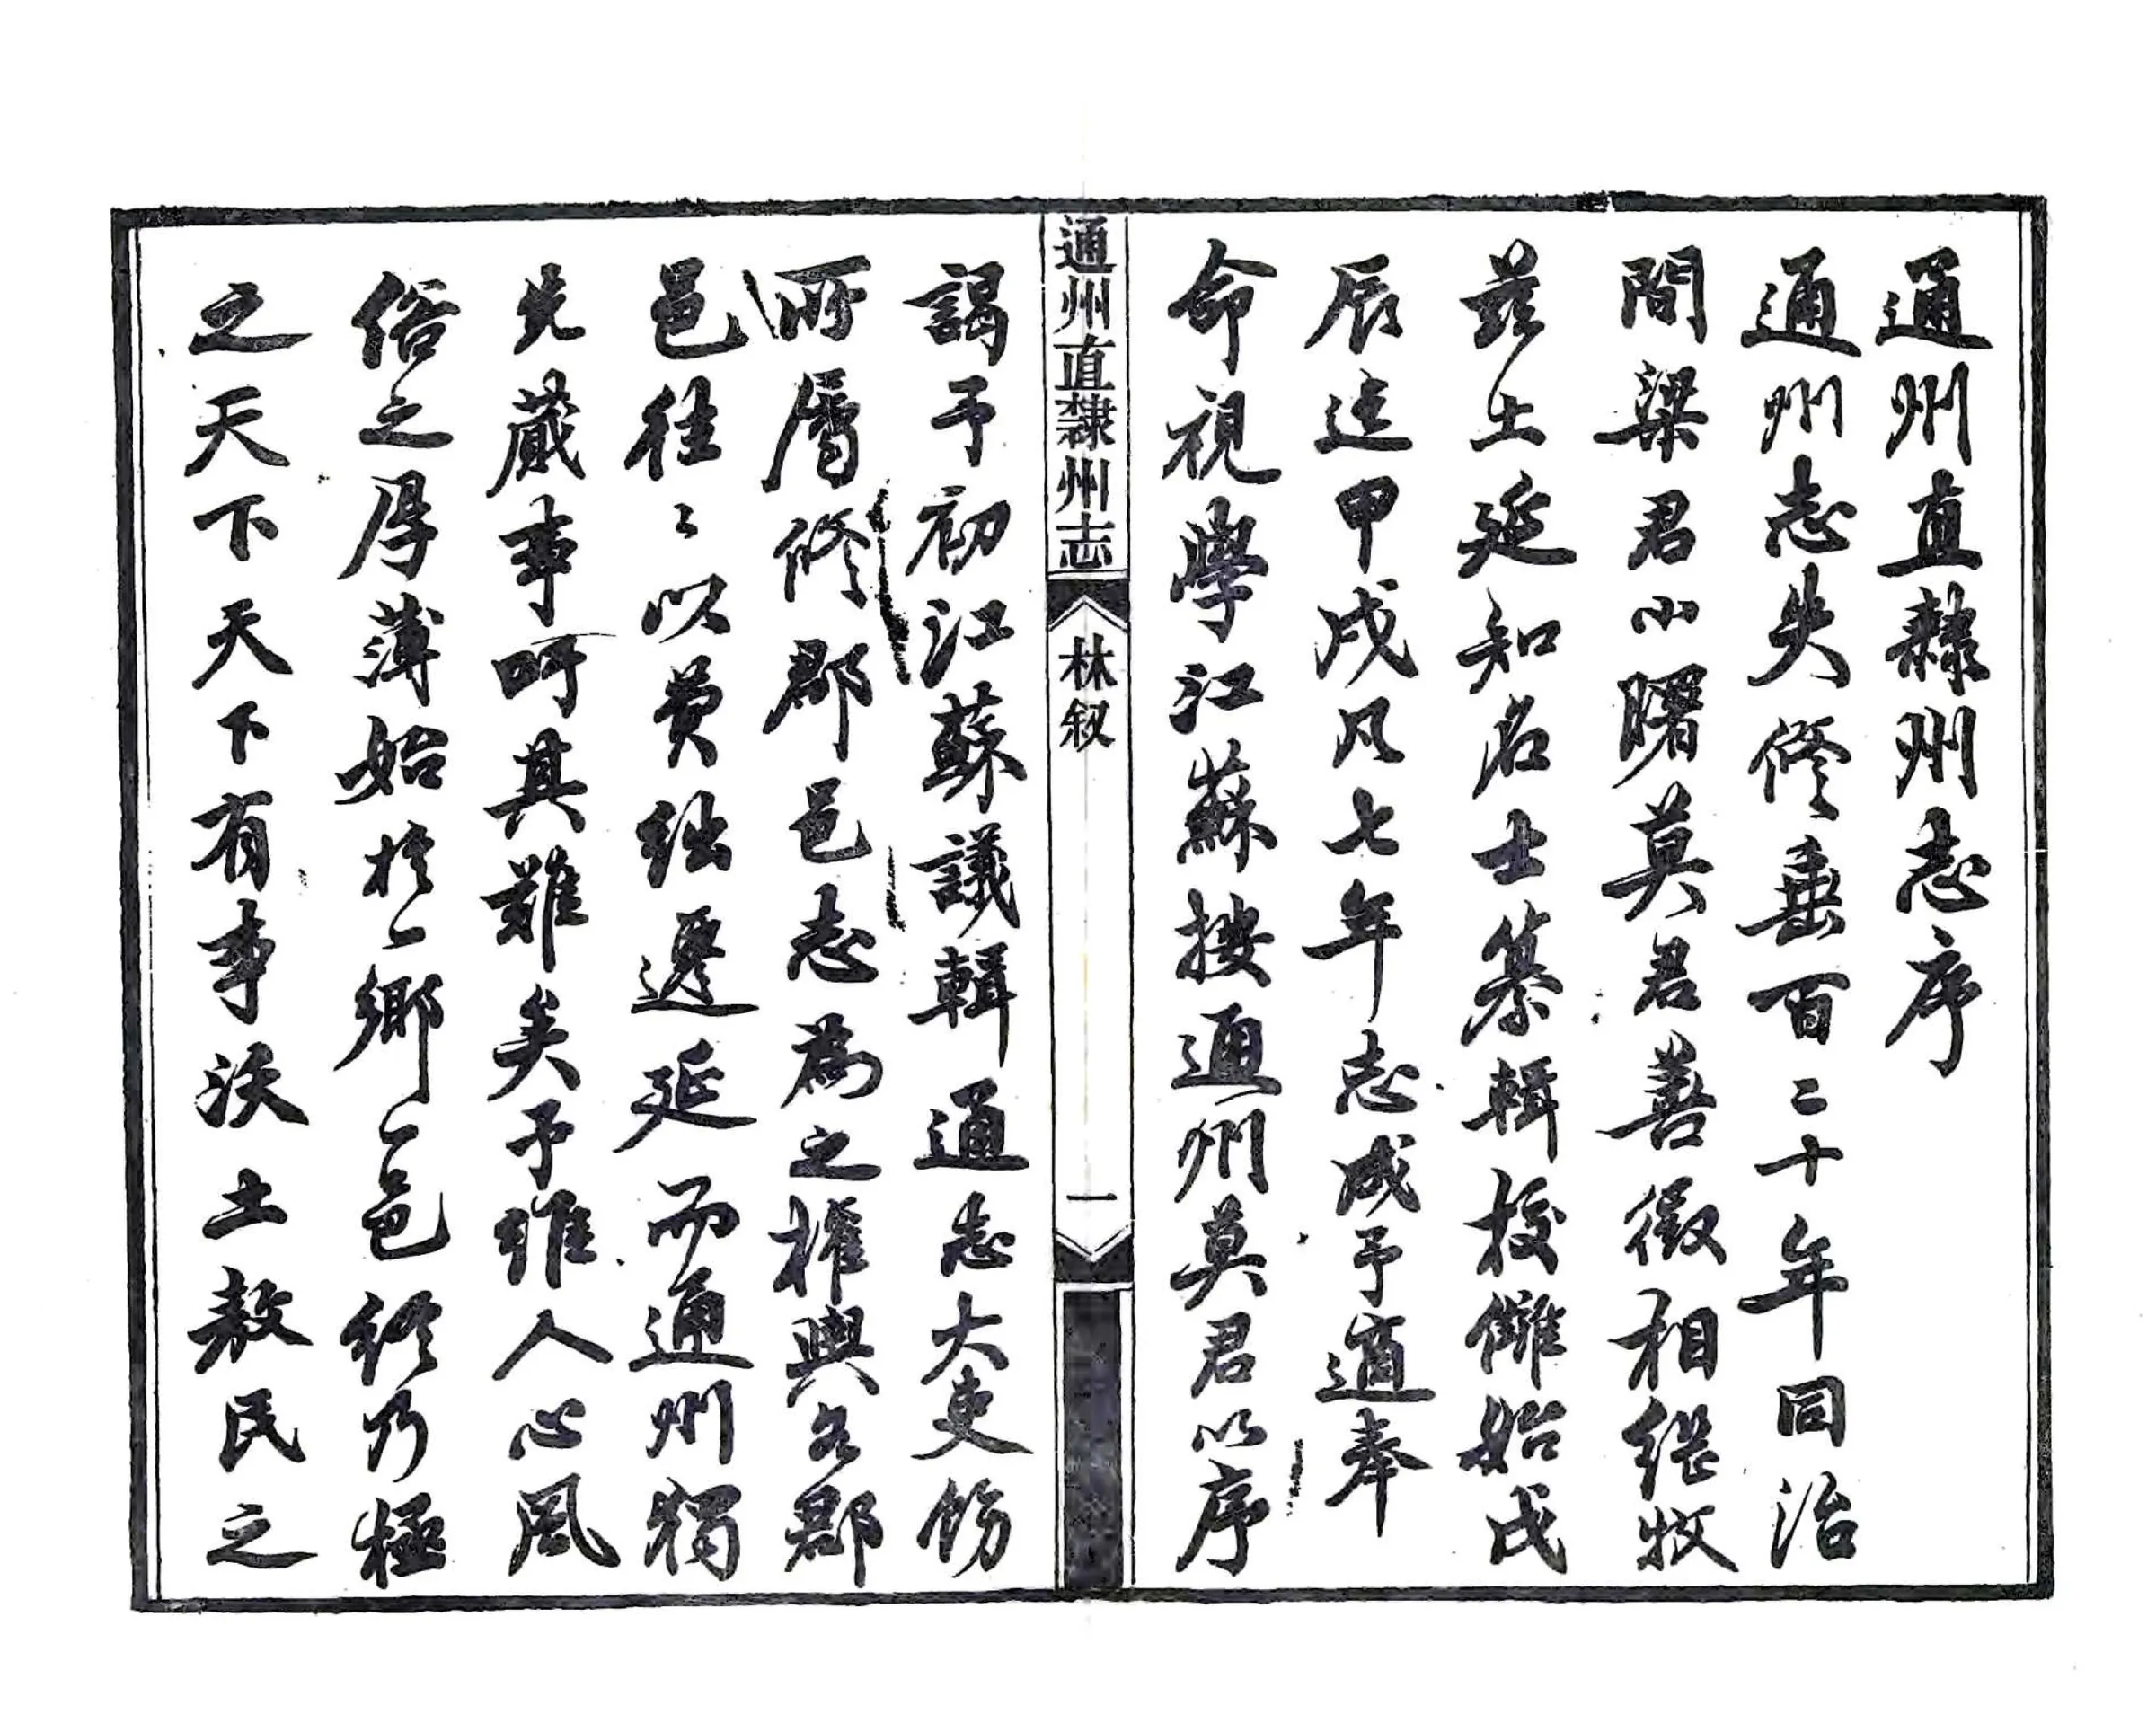 通州直隸州志序
通州志失修垂百二十年同治
間梁君小曙莫君善徵相继牧
兹土延知名士纂輯校讎始戊
辰迄甲戌凡七年志成予適奉
命視學江蘇按通州莫君以序
通州直隸州志
林叙
一
謁予初江蘇議輯通志大吏飭
所屬修郡邑志為之權輿各郡
邑往〻以費絀遷延而通州獨
先蕆事吁其難矣予維人心風
俗之厚薄始於一鄉一邑終乃極
之天下天下有事沃土敖民之